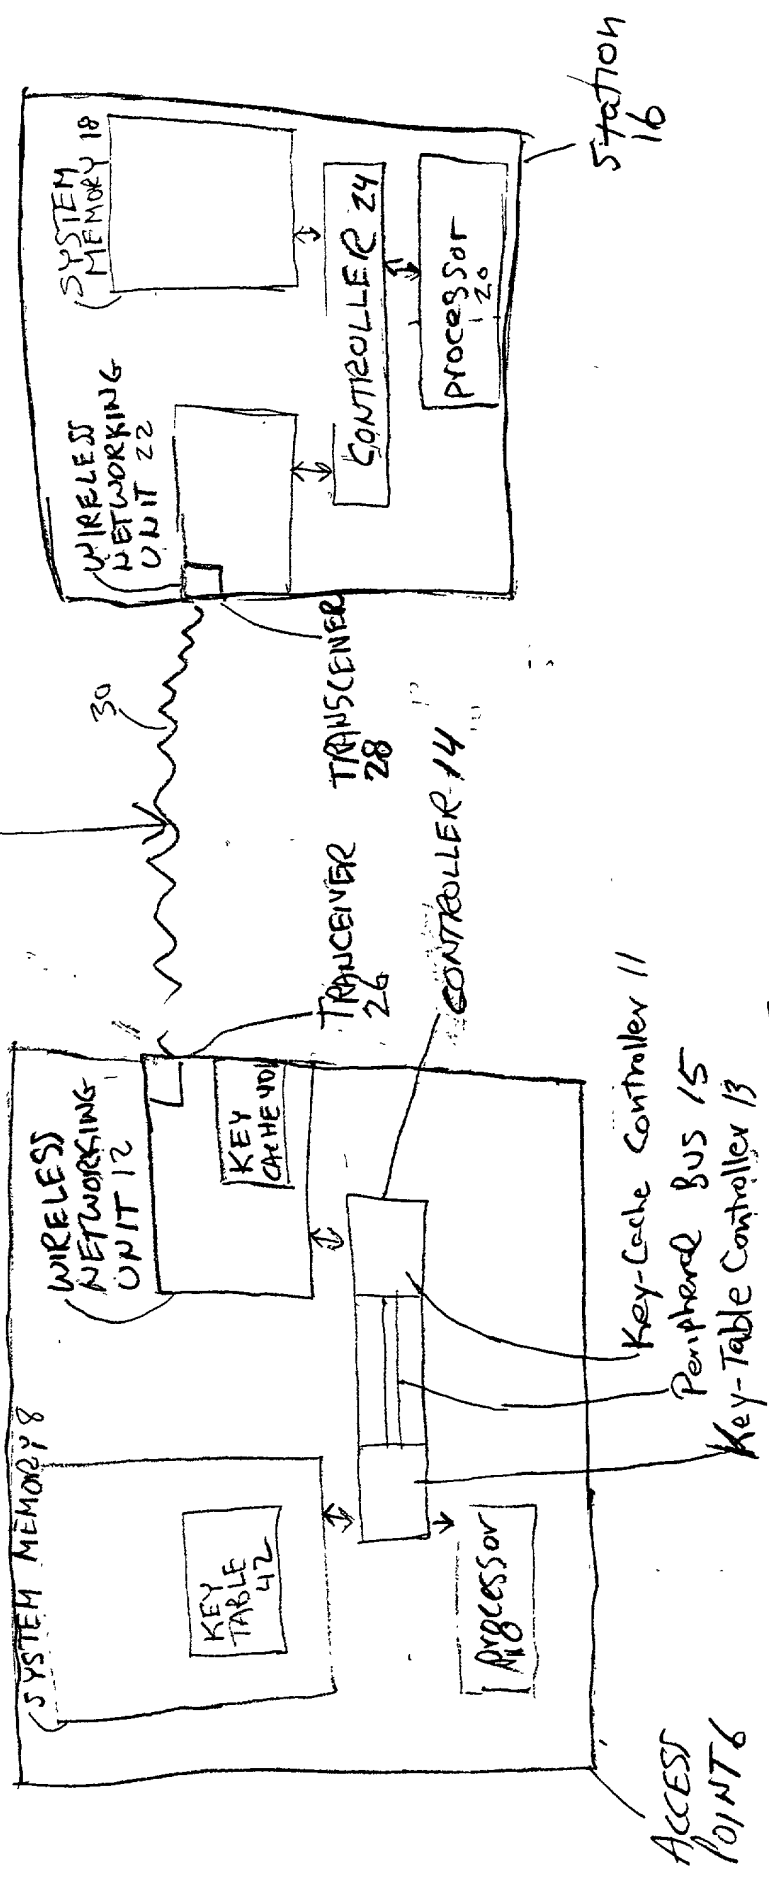 SYSTEM MEMORY 8
KEY
TABLE
42
Processor
ACCESS
POINT 6
WIRELESS
NETWORKING
UNIT 12
KEY
CACHE 40
TRANCEIVER
26
CONTROLLER 14
Key-Cache Controller 11
Peripheral BUS 15
Key-Table Controller 13
30
WIRELESS
NETWORKING
UNIT 22
TRANSCEIVER
28
SYSTEM
MEMORY 18
CONTROLLER 24
processor
20
Station
16